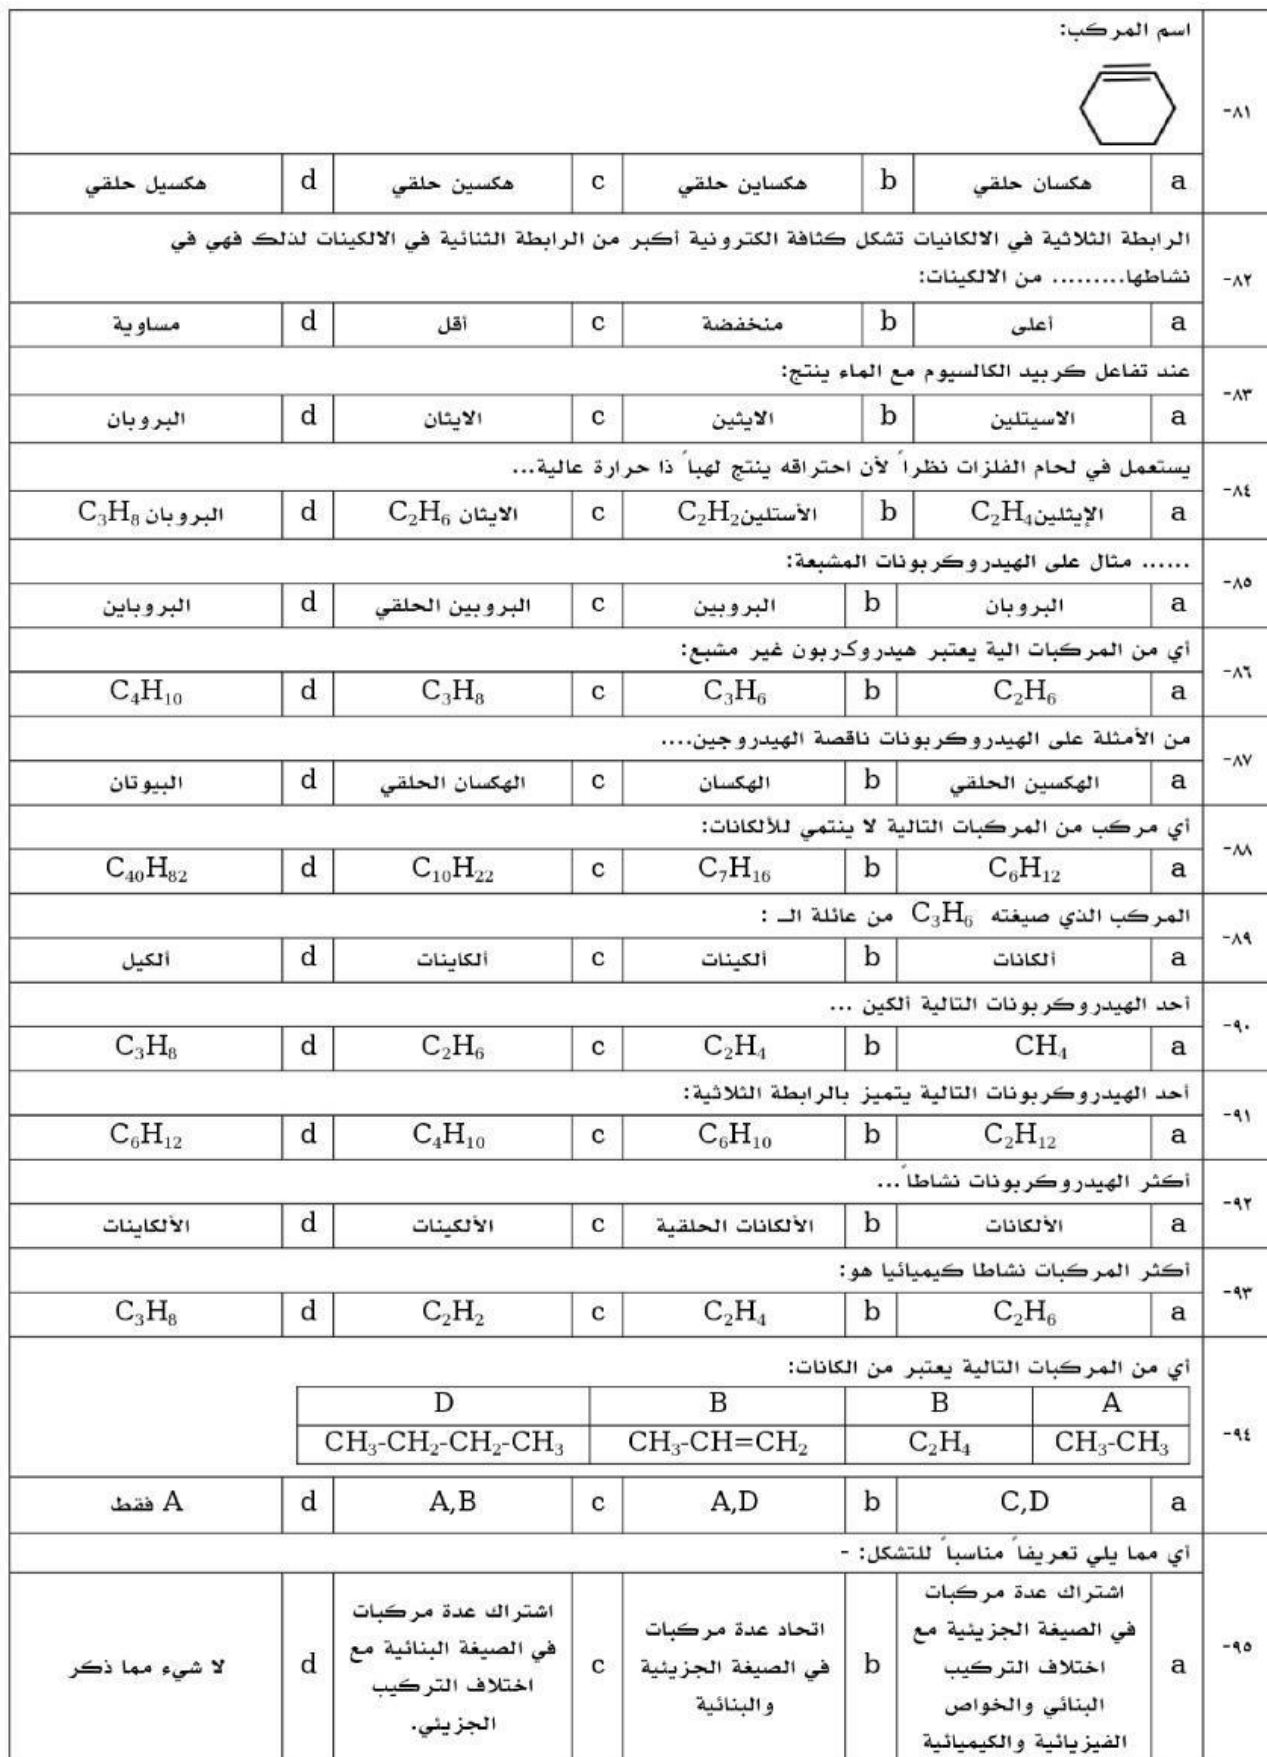 اسم المركب:
٨١-
a هكسان حلقي b هكساين حلقي c هكسين حلقي d هكسيل حلقي
الرابطة الثلاثية في الالكانيات تشكل كثافة الكترونية أكبر من الرابطة الثنائية في الالكينات لذلك فهي في
٨٢- نشاطها......... من الالكينات:
a أعلى b منخفضة c أقل d مساوية
٨٣- عند تفاعل كربيد الكالسيوم مع الماء ينتج:
a الاسيتلين b الايثين c الايثان d البروبان
٨٤- يستعمل في لحام الفلزات نظراً لأن احتراقه ينتج لهباً ذا حرارة عالية...
a الإيثلين C₂H₄ b الأستلين C₂H₂ c الايثان C₂H₆ d البروبان C₃H₈
٨٥- ...... مثال على الهيدروكربونات المشبعة:
a البروبان b البروبين c البروبين الحلقي d البروباين
٨٦- أي من المركبات الية يعتبر هيدروكربون غير مشبع:
a C₂H₆ b C₃H₆ c C₃H₈ d C₄H₁₀
٨٧- من الأمثلة على الهيدروكربونات ناقصة الهيدروجين....
a الهكسين الحلقي b الهكسان c الهكسان الحلقي d البيوتان
٨٨- أي مركب من المركبات التالية لا ينتمي للألكانات:
a C₆H₁₂ b C₇H₁₆ c C₁₀H₂₂ d C₄₀H₈₂
٨٩- المركب الذي صيغته C₃H₆ من عائلة الـ :
a ألكانات b ألكينات c ألكاينات d ألكيل
٩٠- أحد الهيدروكربونات التالية ألكين ...
a CH₄ b C₂H₄ c C₂H₆ d C₃H₈
٩١- أحد الهيدروكربونات التالية يتميز بالرابطة الثلاثية:
a C₂H₁₂ b C₆H₁₀ c C₄H₁₀ d C₆H₁₂
٩٢- أكثر الهيدروكربونات نشاطاً...
a الألكانات b الألكانات الحلقية c الألكينات d الألكاينات
٩٣- أكثر المركبات نشاطا كيميائيا هو:
a C₂H₆ b C₂H₄ c C₂H₂ d C₃H₈
أي من المركبات التالية يعتبر من الكانات:
A B B D
٩٤- CH₃-CH₃ C₂H₄ CH₃-CH=CH₂ CH₃-CH₂-CH₂-CH₃
a C,D b A,D c A,B d A فقط
أي مما يلي تعريفاً مناسباً للتشكل: -
٩٥-
a اشتراك عدة مركبات
في الصيغة الجزيئية مع
اختلاف التركيب
البنائي والخواص
الفيزيائية والكيميائية
b اتحاد عدة مركبات
في الصيغة الجزيئية
والبنائية
c اشتراك عدة مركبات
في الصيغة البنائية مع
اختلاف التركيب
الجزيئي.
d لا شيء مما ذكر